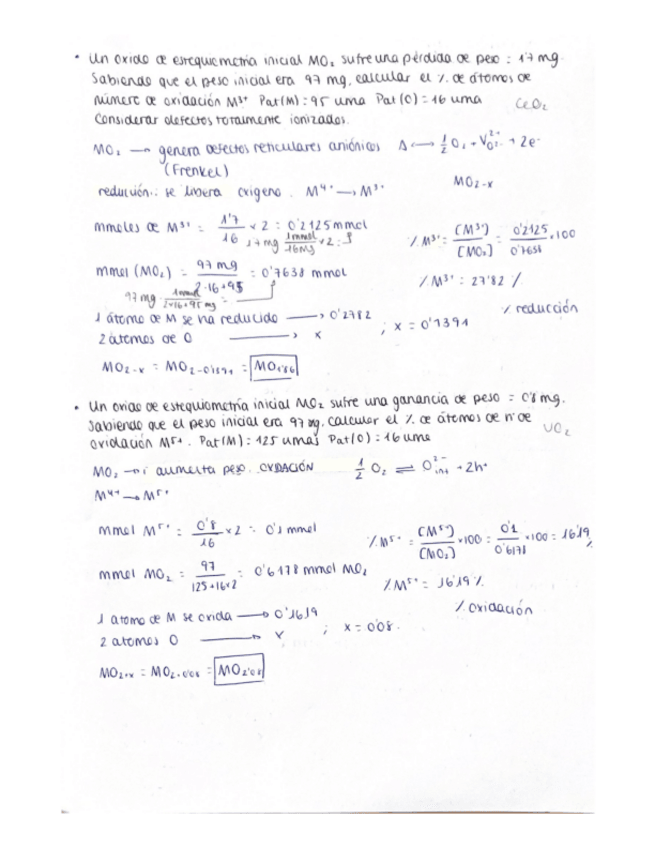 • Un oxido de estequiometria inicial MO₂ sufre una pérdida de peso = 1'7 mg.
Sabiendo que el peso inicial era 97 mg, calcular el % de átomos de
número de oxidación M³⁺ Pat(M)=95 uma Pat(O)=16 uma
CeO₂
Considerar defectos totalmente ionizados.
MO₂ → genera defectos reticulares aniónicos Δ ⟷ ½O₂ + V_O²⁻^2+ + 2e⁻
(Frenkel)
MO₂₋ₓ
reducción: se libera oxígeno. M⁴⁺ → M³⁺
mmoles de M³⁺ = 1'7/16 × 2 = 0'2125 mmol
1'7 mg 1mmol/16mg × 2 =
% M³⁺ = [M³⁺]/[MO₂] = 0'2125/0'7638 × 100
mmol (MO₂) = 97 mg/2·16+95 = 0'7638 mmol
97 mg · 1mmol/2×16+95 mg =
% M³⁺ = 27'82 %
% reducción
1 átomo de M se ha reducido → 0'2782
2 átomos de O → x
; x = 0'1391
MO₂₋ₓ = MO₂₋₀'₁₃₉₁ = MO₁'₈₆
• Un oxido de estequiometria inicial MO₂ sufre una ganancia de peso = 0'8 mg.
Sabiendo que el peso inicial era 97 mg, calcular el % de átomos de nº de
UO₂
oxidación M⁵⁺. Pat(M)=125 umas Pat(O)=16 uma
MO₂ → aumenta peso. OXIDACIÓN ½ O₂ ⇌ O_int²⁻ + 2h⁺
M⁴⁺ → M⁵⁺
mmol M⁵⁺ = 0'8/16 × 2 = 0'1 mmol
% M⁵⁺ = [M⁵⁺]/[MO₂] × 100 = 0'1/0'6178 × 100 = 16'19 %
mmol MO₂ = 97/125+16×2 = 0'6178 mmol MO₂
% M⁵⁺ = 16'19 %
% oxidación
1 atomo de M se oxida → 0'1619
2 atomos O → x
; x = 0'08.
MO₂₊ₓ = MO₂₊₀'₀₈ = MO₂'₀₈